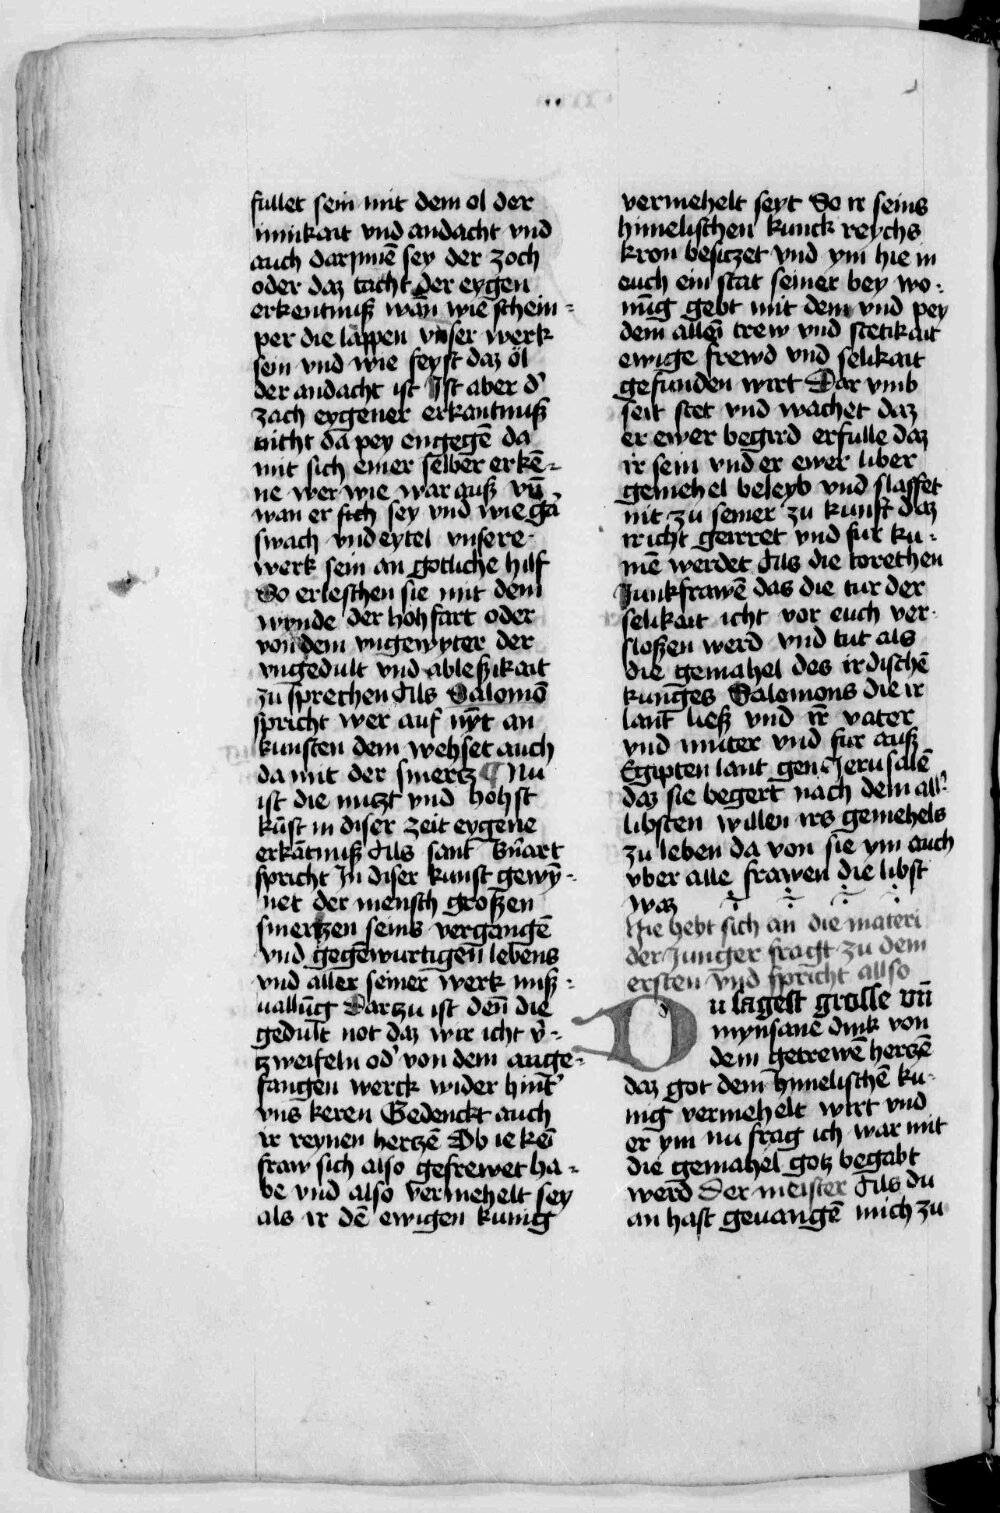 fullet sein mit dem ol der
innikait vnd andacht vnd
auch darynnē sey der zoch
oder daz tacht der eygen
erkentnuß wan wie schein-
per die lampen vnser werk
sein vnd wie feyst daz öl
der andacht ist Ist aber d'
zach eygener erkantnuß
nicht da pey engegē da
mit sich einer selber erkē-
ne wer wie war auß vn̄
wan er sich sey vnd wie gā
swach vnd eytel vnsere
werk sein an gotliche hilf
So erleschen sie mit dem
wynde der hohfart oder
von dem vngewyter der
vngedult vnd ableßikait
zu sprechen Als Salomō
spricht wer auf nyt an
kunsten dem wehset auch
da mit der smertz ¶ Nu
ist die nutzt vnd hohst
kūst in diser zeit eygene
erkātnuß Als sant b'nart
spricht In diser kunst gewȳ-
net der mensch großen
smertzen seins vergangē
vnd gegēwurtigen lebens
vnd aller seiner werk miß-
uallūg Dartzu ist den̄ die
gedult not daz wir icht v'-
tzweifeln od' von dem ange-
fangen werck wider hint'
vns keren Gedenckt auch
ir reynen hertzē Ob ie kei
fraw sich also gefrewet ha-
be vnd also vermehelt sey
als ir dē ewigen kunig
vermehelt seyt So ir seins
himelischen kunck reychs
kron besitzet vnd ym hie in
euch ein stat seiner bey wo-
nūg gebt mit dem vnd pey
dem allen trew vnd stetikait
ewige frewd vnd selikait
gefunden wirt Dar vmb
seit stet vnd wachet daz
er ewer begird erfulle daz
ir sein vnd er ewer liber
gemehel beleyb vnd slaffet
nit zu seiner zu kunft daz
ir icht geirret vnd fur ku-
mē werdet Als die torethen
Junkfrawē das die tur der
selikait icht vor euch ver-
sloßen werd vnd tut als
die gemahel des irdischē
kunges Salomons die ir
lant ließ vnd ir vater
vnd muter vnd fur auß
Egipten lant gen Jerusalē
daz sie begert nach dem all'
libsten willen irs gemehels
zu leben da von sie ym auch
vber alle frawen die libst
waz
Hie hebt sich an die materi
der Junger fragt zu dem
ersten vnd spricht allso
Du sagest grosse vn̄
mynsame dink von
dem getrewē hertzē
daz got dem himelischē ku-
nig vermehelt wirt vnd
er ym nu frag ich war mit
die gemahel gotz begabt
werd Der meister Als du
an hast geuangē mich zu